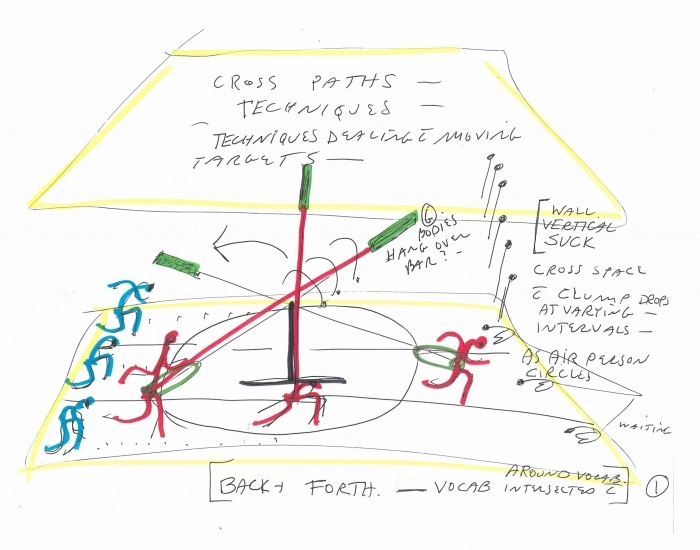 CROSS PATHS —
TECHNIQUES —
TECHNIQUES DEALING C̄ MOVING
TARGETS —
⑥
BODIES
HANG OVER
BAR? —
WALL
VERTICAL
SUCK
CROSS SPACE
C̄ CLUMP DROPS
AT VARYING —
INTERVALS —
AS AIR PERSON
CIRCLES
WAITING
AROUND VOCAB
[BACK + FORTH. — VOCAB INTERSECTED C̄] ①